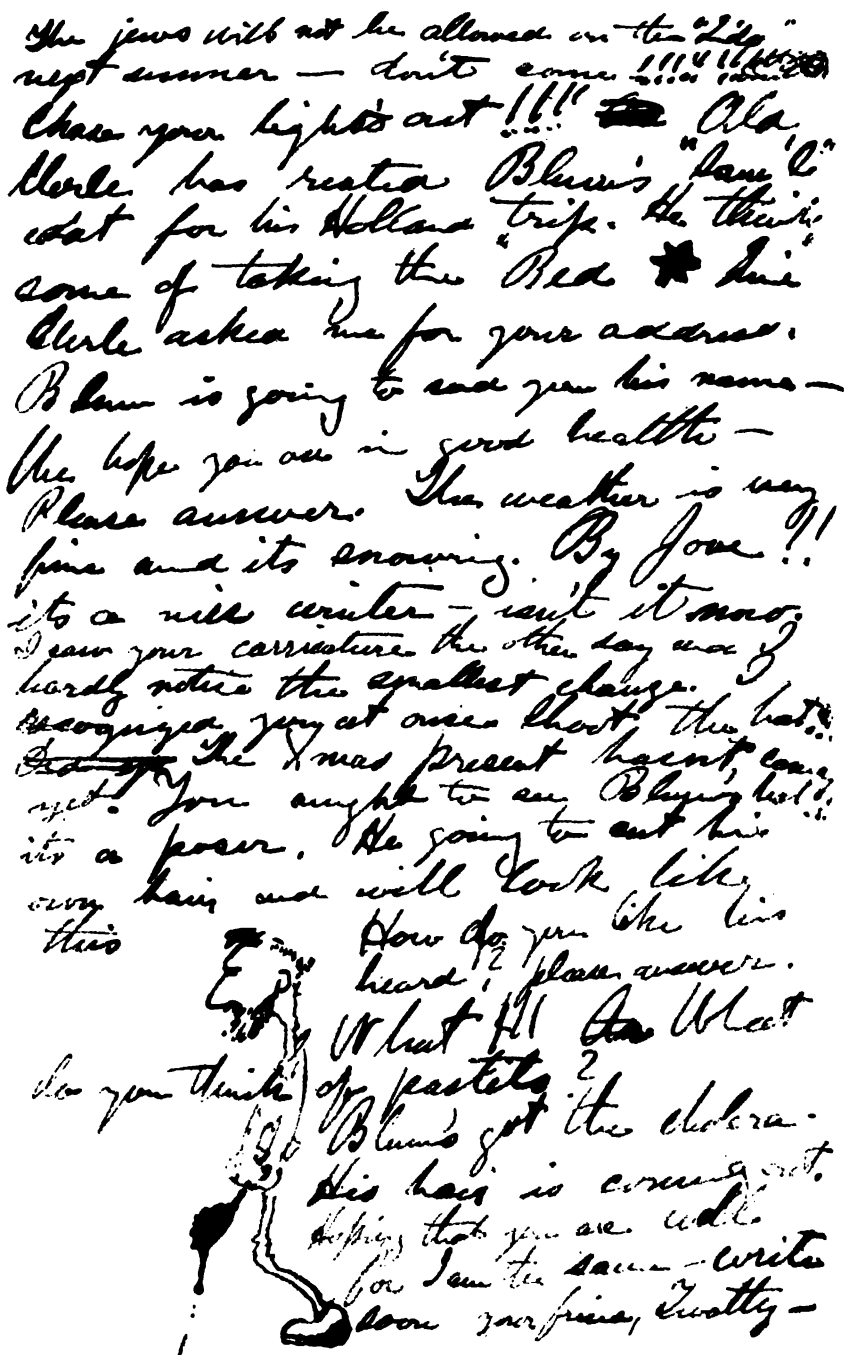 The jews will not be allowed on the "Lido"
next summer — don't come !!!
Chase your light's out !!!! Old
Clerle has rented Blum's "Sam'l"
coat for his Holland trip. He thinks
some of taking the "Red ★ Line"
Clerle asked me for your address.
Blum is going to send you his name —
We hope you are in good health —
Please answer. The weather is very
fine and its snowing. By Jove !!
its a nice winter — isn't it now.
I saw your carricature the other day and I
hardly notice the smallest change.
recognized you at once Shoot the hat
The Xmas present hasn't come
yet! You aught to see Blum's
its a poser. He going to cut his
own hair and will look like
this How do you like his
beard? please answer.
What !!! What
do you think of pastels?
Blum's got the cholera.
His hair is coming out.
Hoping that you are well
for I am the same — write
soon your friend, Twatty —